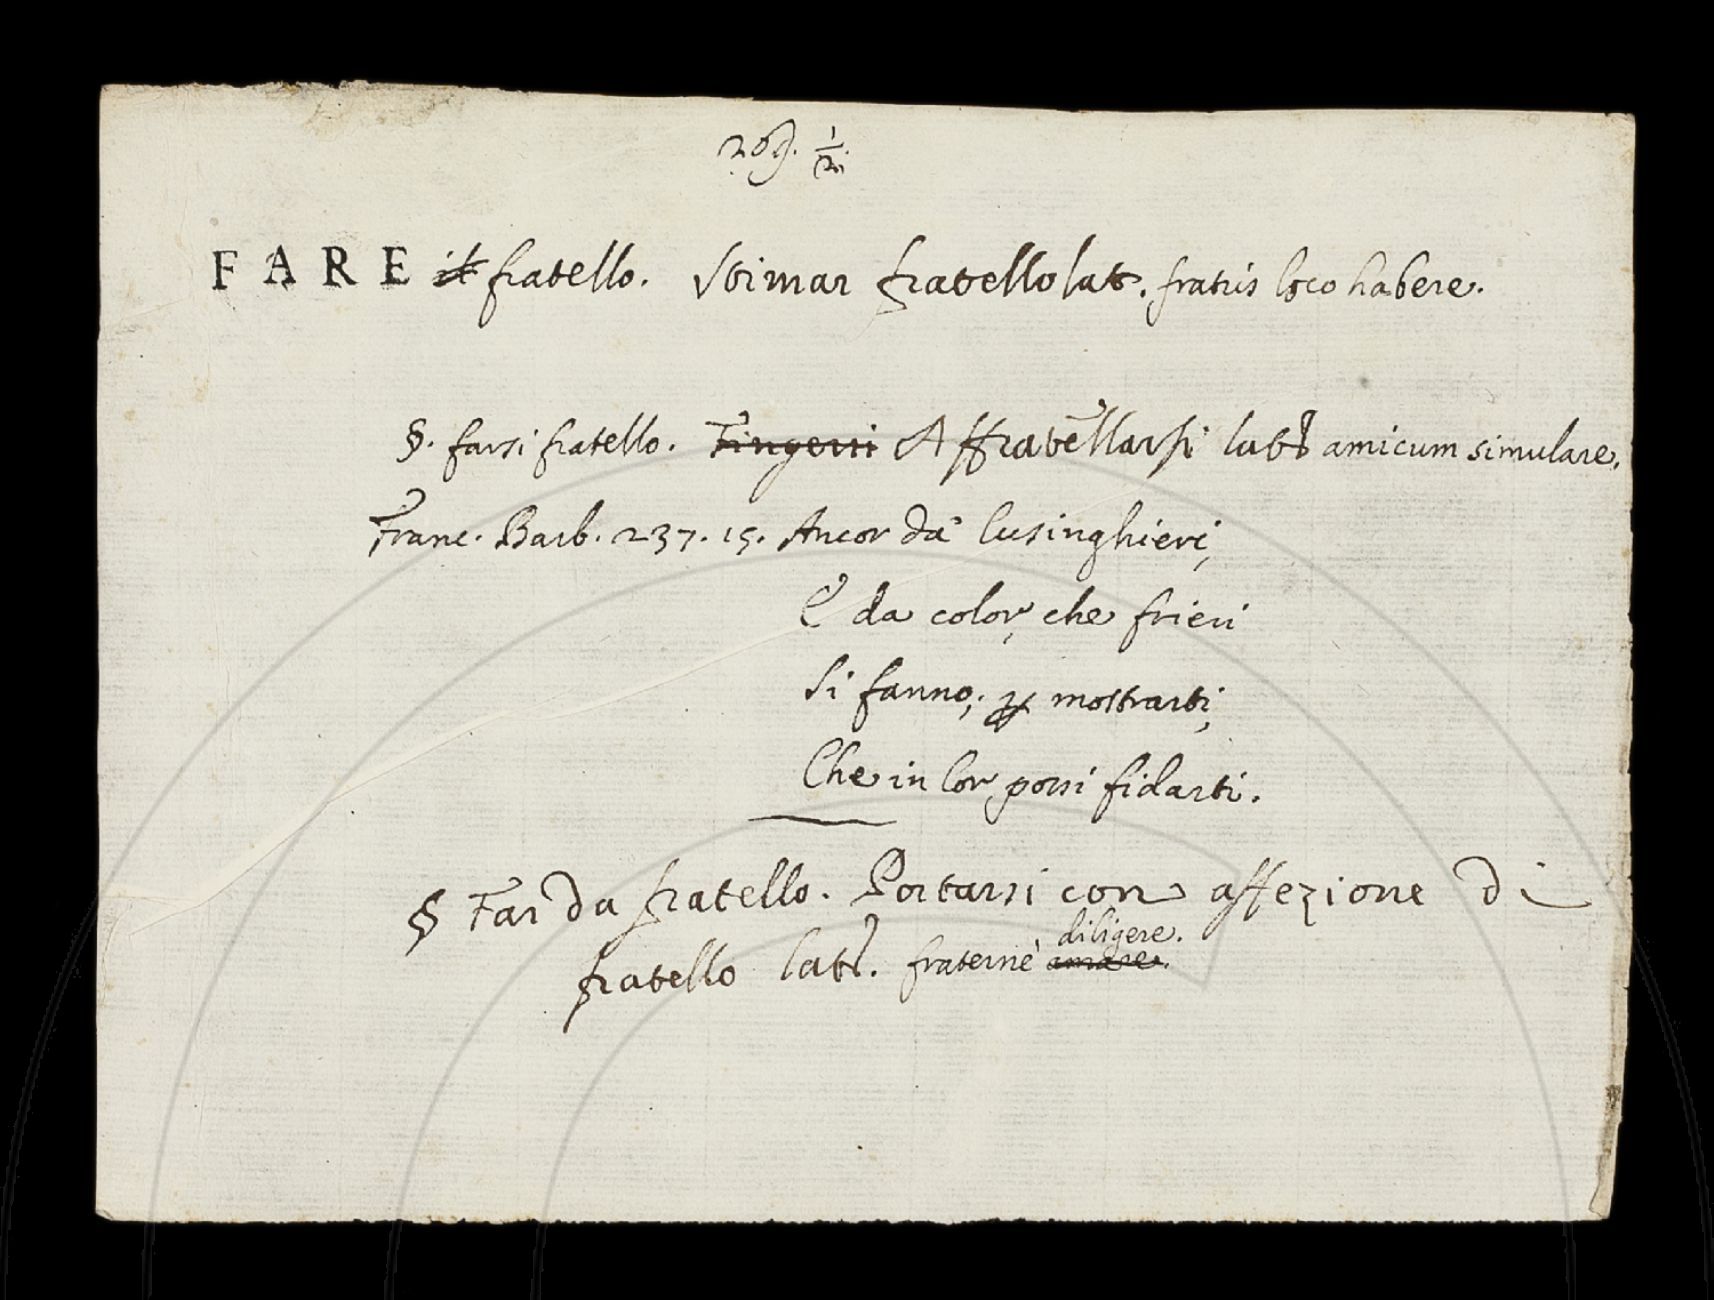 209. 1/2.
FARE il fratello. Stimar fratello lat. fratris loco habere.
§. farsi fratello. Fingersi Affratellarsi latⁱ amicum simulare.
Franc. Barb. 237. 15. Ancor da' lusinghieri,
E da color, che frieri
Si fanno; p mostrarti,
Che in lor possi fidarti.
§ Far da fratello. Portarsi con affezione di
diligere.
fratello lat. fraternè amare.